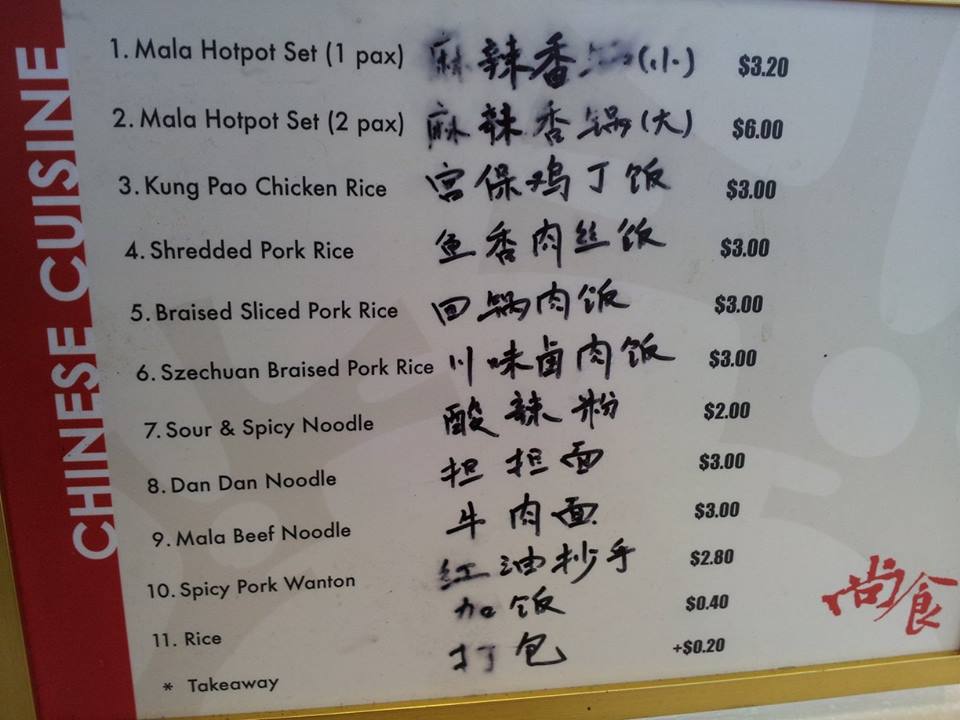 CHINESE CUISINE
1. Mala Hotpot Set (1 pax) 麻辣香 (小) $3.20
2. Mala Hotpot Set (2 pax) 麻辣香锅 (大) $6.00
3. Kung Pao Chicken Rice 宫保鸡丁饭 $3.00
4. Shredded Pork Rice 鱼香肉丝饭 $3.00
5. Braised Sliced Pork Rice 回锅肉饭 $3.00
6. Szechuan Braised Pork Rice 川味卤肉饭 $3.00
7. Sour & Spicy Noodle 酸辣粉 $2.00
8. Dan Dan Noodle 担担面 $3.00
9. Mala Beef Noodle 牛肉面 $3.00
10. Spicy Pork Wanton 红油抄手 $2.80
11. Rice 加饭 $0.40
* Takeaway 打包 +$0.20
尚食